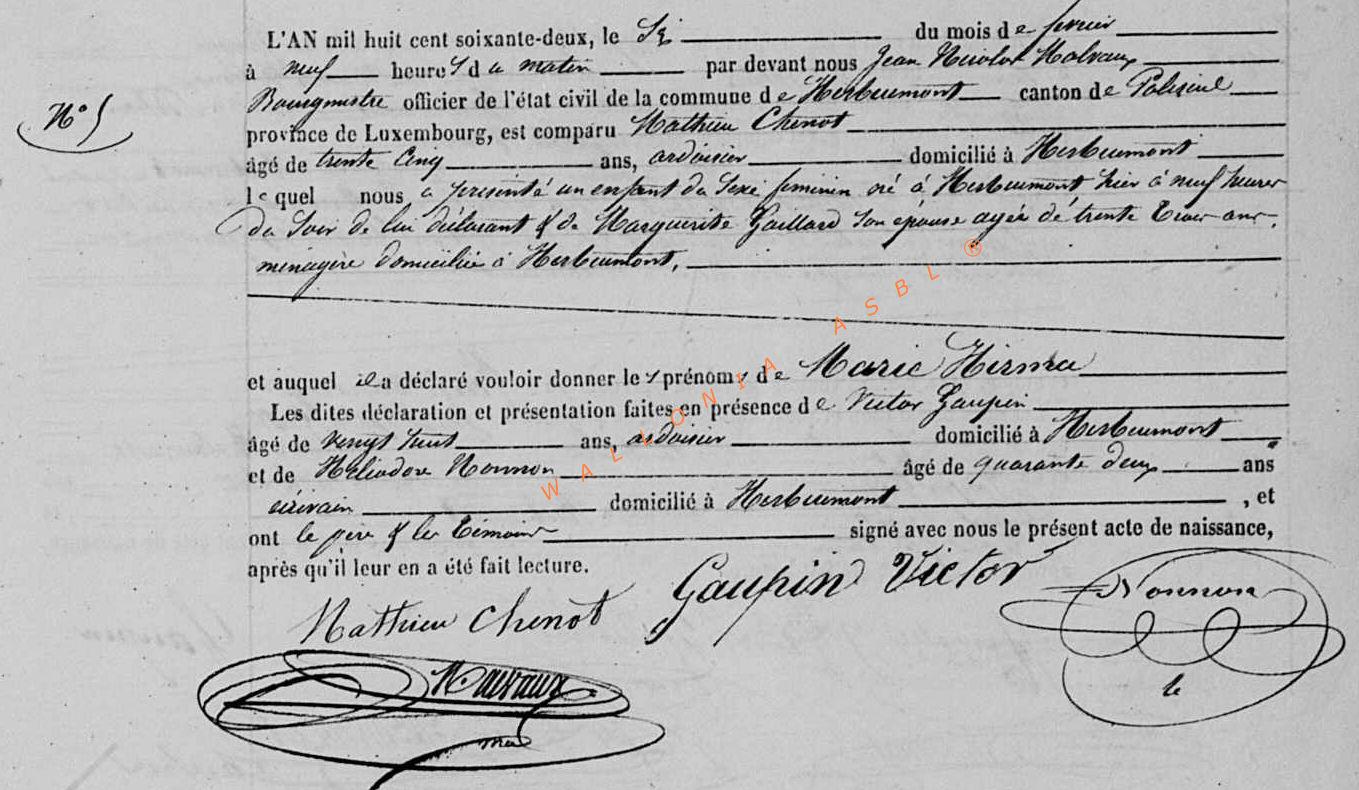 L'AN mil huit cent soixante-deux, le Six du mois de février
à neuf heures du matin par devant nous Jean Nicolas Malvaux
N° 5
Bourgmestre officier de l'état civil de la commune de Herbeumont canton de Paliseul
province de Luxembourg, est comparu Mathieu Chenot
âgé de trente Cinq ans, ardoisier domicilié à Herbeumont
lequel nous a présenté un enfant du Sexe féminin né à Herbeumont hier à neuf heures
du Soir de lui déclarant & de Marguerite Gaillard Son épouse agée de trente Trois ans,
ménagère domiciliée à Herbeumont,
et auquel il a déclaré vouloir donner les prénoms de Marie Hirma
Les dites déclaration et présentation faites en présence de Victor Gaupin
âgé de vingt huit ans, ardoisier domicilié à Herbeumont
et de Héliodore Nonnon âgé de quarante deux ans
écrivain domicilié à Herbeumont, et
ont le père & les Témoins signé avec nous le présent acte de naissance,
après qu'il leur en a été fait lecture.
Mathieu Chenot Gaupin Victor Nonnon
Malvaux
WALLONIA ASBL ®